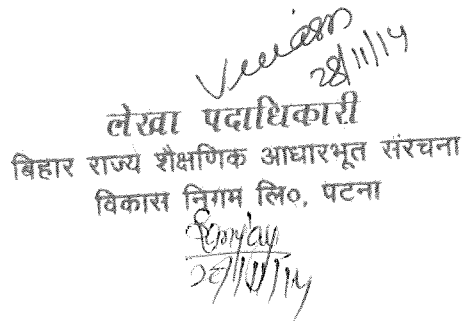 28/11/14
लेखा पदाधिकारी
बिहार राज्य शैक्षणिक आधारभूत संरचना
विकास निगम लि०, पटना
Sanjay
28/11/14